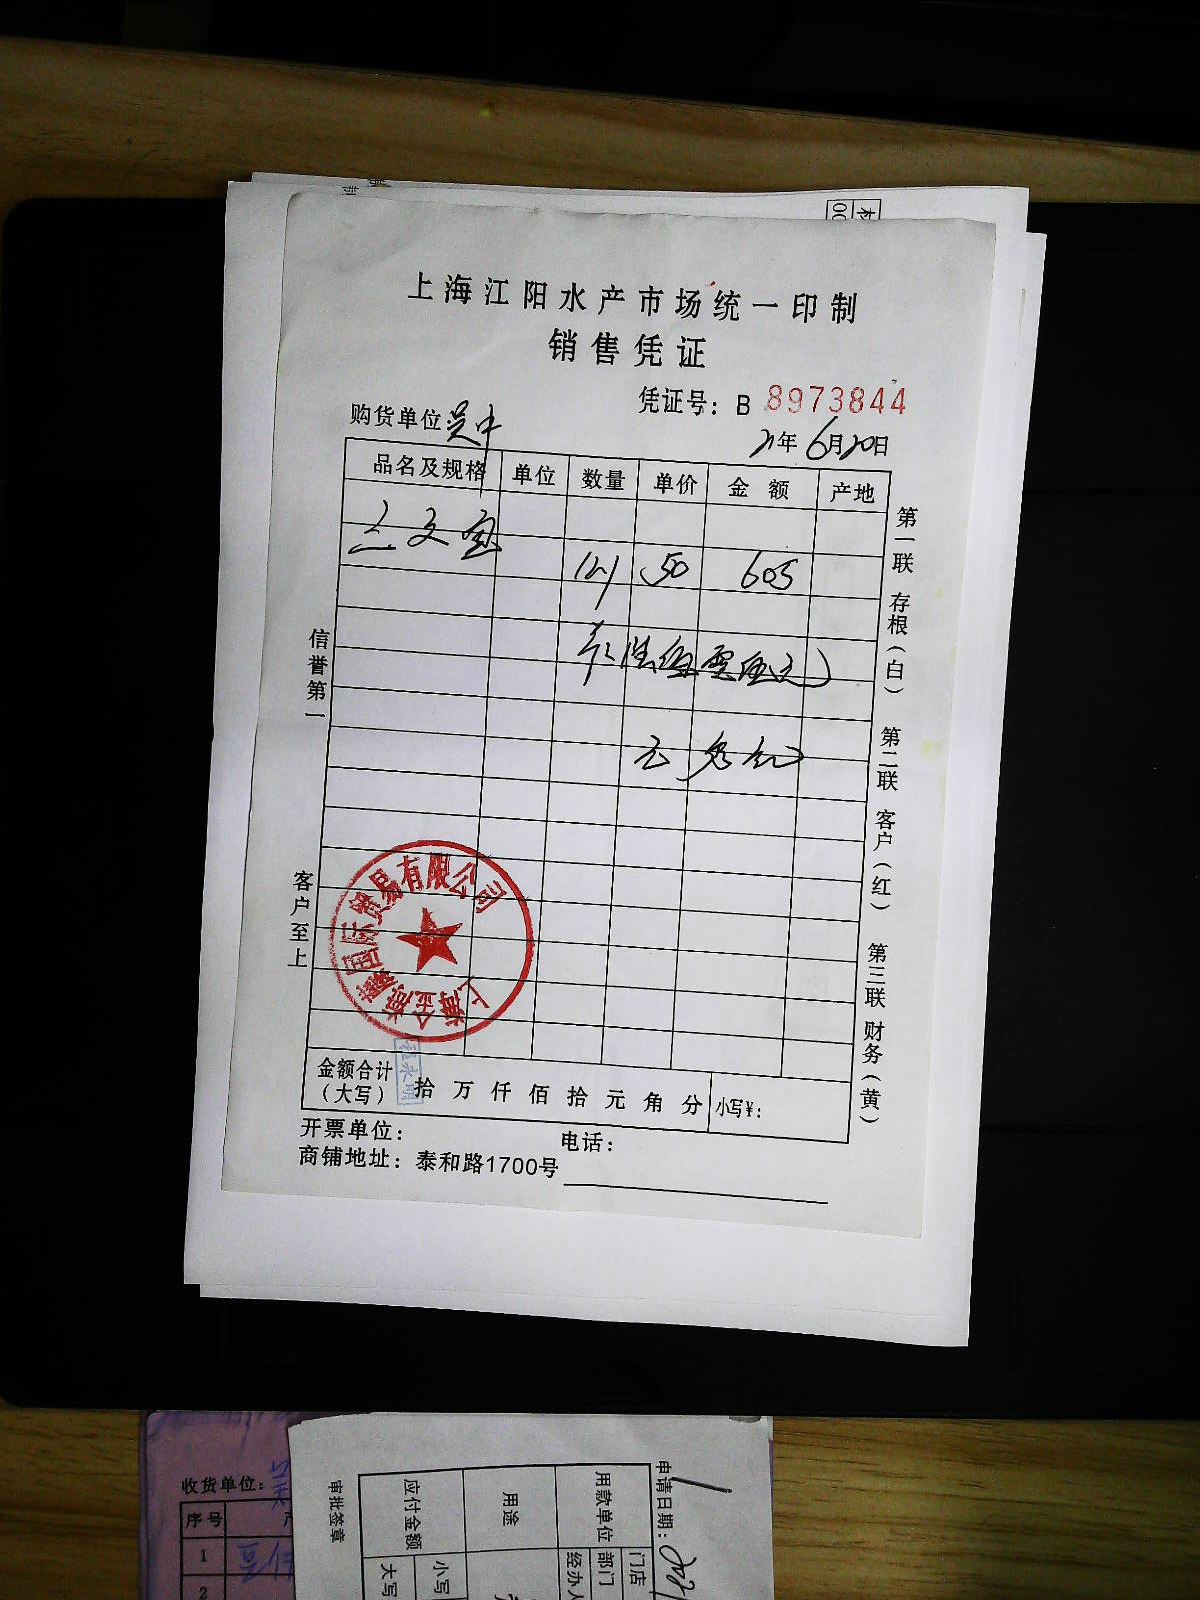 上海江阳水产市场统一印制
销售凭证
凭证号：B 8973844
购货单位：吴中
21年6月20日
品名及规格 单位 数量 单价 金额 产地
三文鱼
121 50 605
信誉第一
客户至上
第一联 存根（白） 第二联 客户（红） 第三联 财务（黄）
国际贸易有限公司
金额合计（大写） 拾 万 仟 佰 拾 元 角 分 小写¥：
开票单位： 电话：
商铺地址：泰和路1700号
收货单位：
序号
1
2
审批签章
应付金额
大写
小写
用途
用款单位
门店
部门
经办人
申请日期：